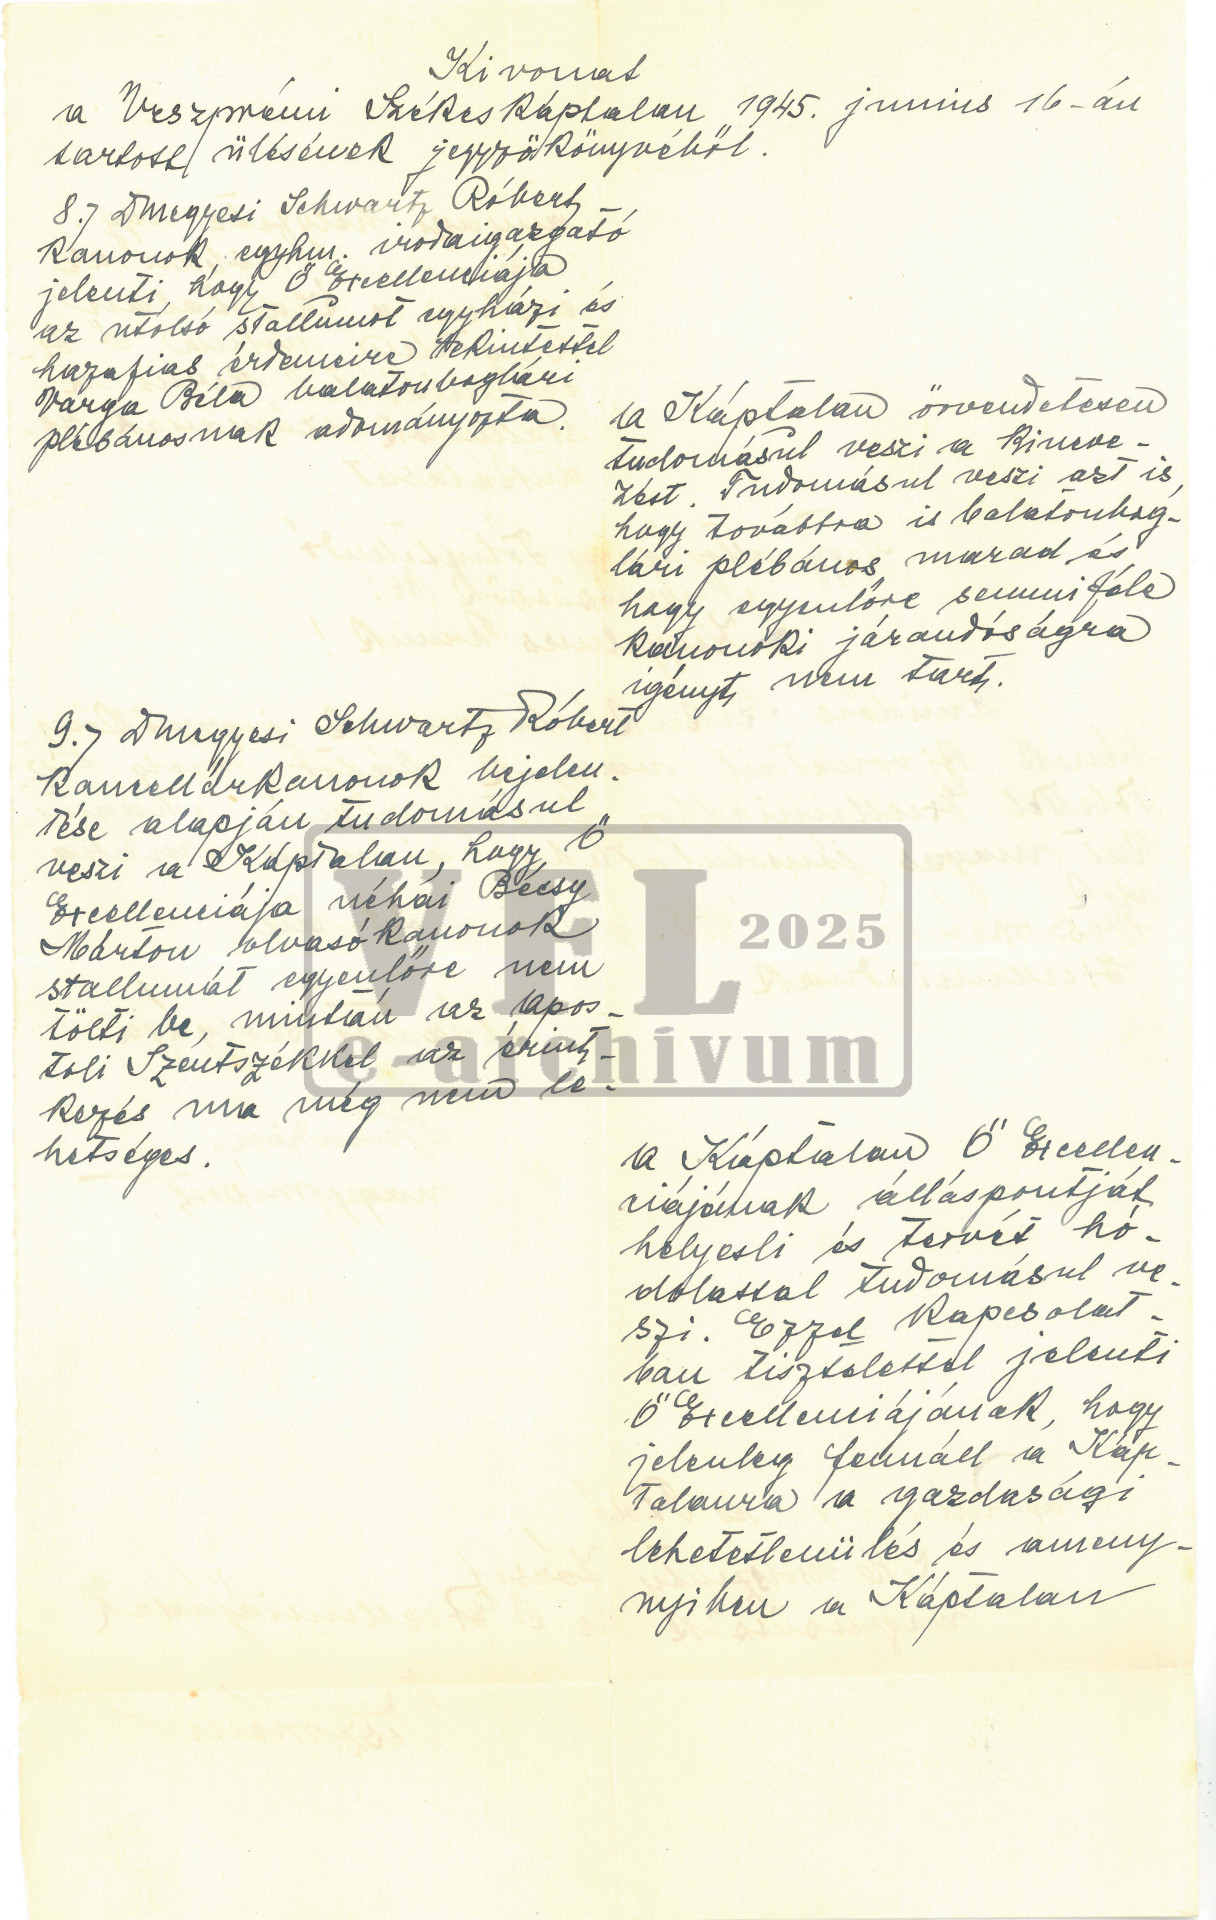 Kivonat
a Veszprémi Székeskáptalan 1945. junius 16-án
tartott ülésének jegyzőkönyvéből.
8./ Dmegyesi Schwartz Róbert
kanonok, egyhm. irodaigazgató
jelenti, hogy Ő Excellenciája
az utolsó stallumot egyházi és
hazafias érdemeire tekintettel
Varga Béla balatonboglári
plébánosnak adományozta.
a Káptalan örvendetesen
tudomásul veszi a kineve-
zést. Tudomásul veszi azt is,
hogy továbbra is balatonbog-
lári plébános marad és
hogy egyenlőre semmiféle
kanonoki járandóságra
igényt nem tart.
9./ Dmegyesi Schwartz Róbert
kancellárkanonok bejelen-
tése alapján tudomásul
veszi a Káptalan, hogy Ő
Excellenciája néhai Bécsy
Márton olvasókanonok
stallumát egyenlőre nem
tölti be, miután az apos-
toli Szentszékkel az érint-
kezés ma még nem le-
hetséges.
VFL 2025
e-archivum
a Káptalan Ő Excellen-
ciájának álláspontját
helyesli és tervét hó-
dolattal tudomásul ve-
szi. Ezzel kapcsolat-
ban tisztelettel jelenti
Ő Excellenciájának, hogy
jelenleg fennáll a Káp-
talanra a gazdasági
lehetetlenülés és ameny-
nyiben a Káptalan